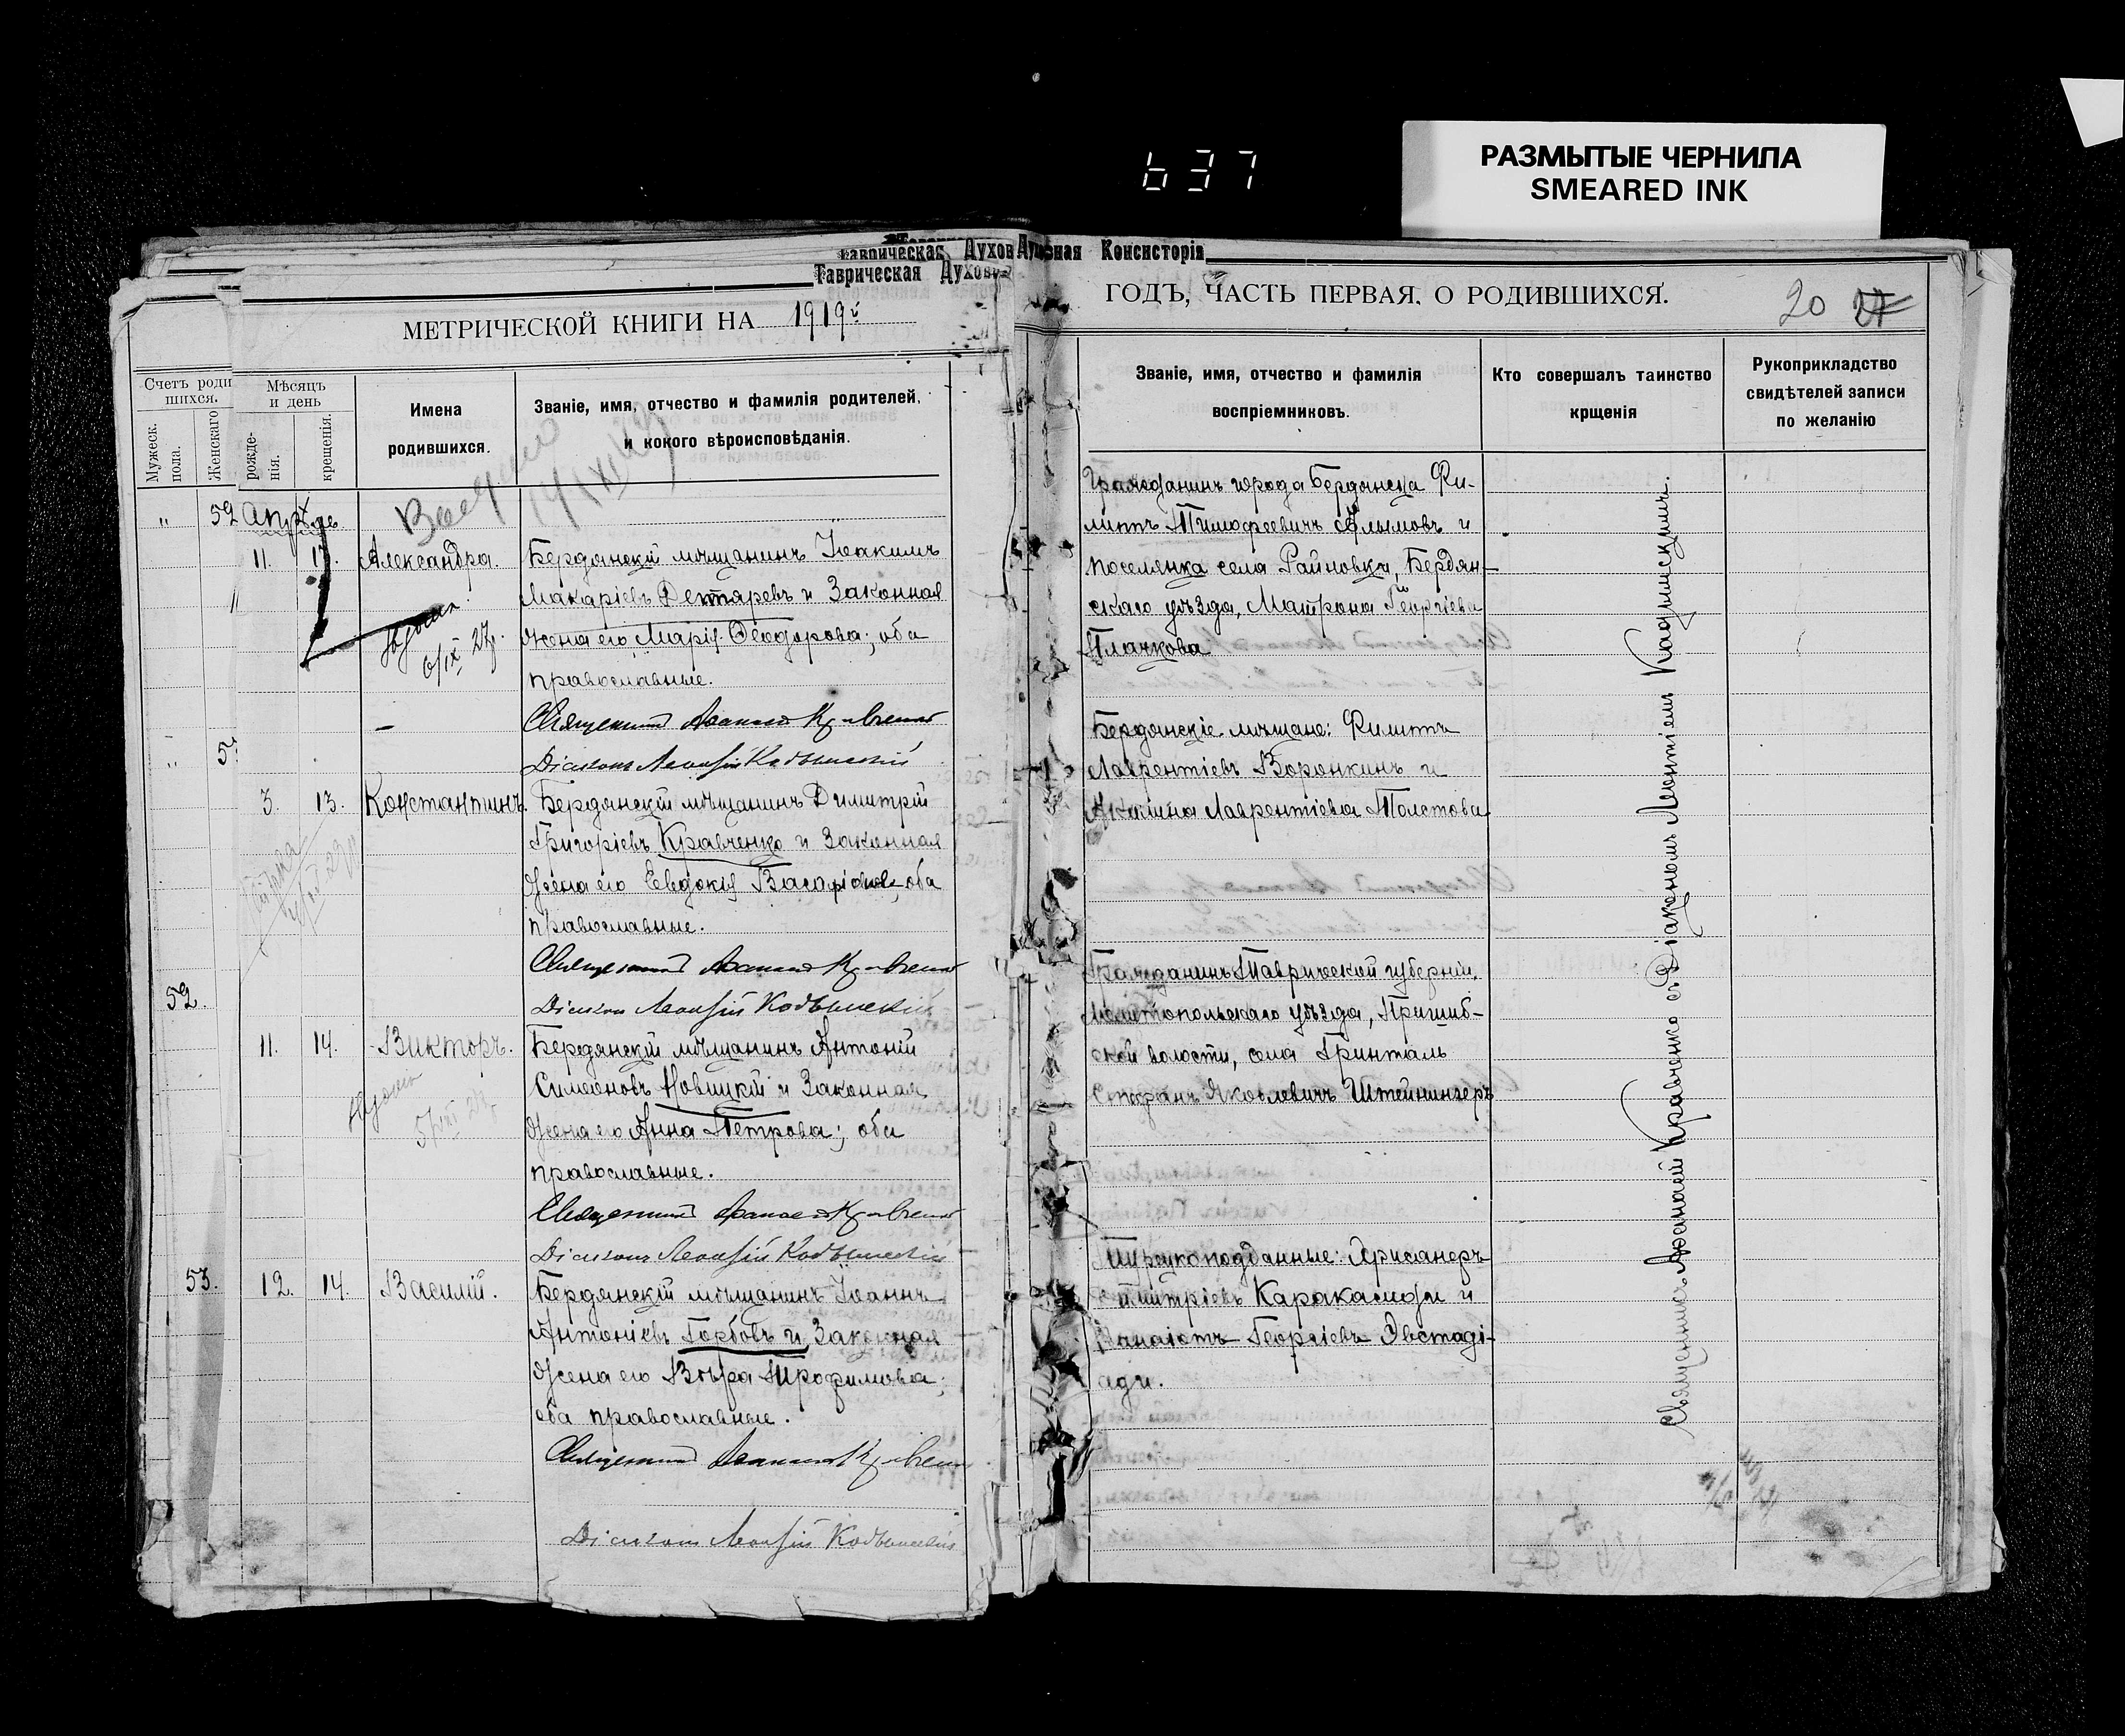 637
РАЗМЫТЫЕ ЧЕРНИЛА
SMEARED INK
Таврическая Духов
Духовная Консисторія
Таврическая Духов
МЕТРИЧЕСКОЙ КНИГИ НА 1919й
Счетъ роди
шихся.
Мужеск.
пола.
Женскаго
Мѣсяцъ
и день
рожде-
нія.
крещенія.
Имена
родившихся.
Званіе, имя, отчество и фамилія родителей,
и кокого вѣроисповѣданія.
" 52 Апрѣль
11. 17. Александра. Бердянскій мѣщанинъ Іоакимъ
Макаріевъ Дехтяревъ и законная
жена его Марія Ѳеодорова; оба
православные.
6/IX 27г.
Священникъ Аѳанасій Кравченко
Діаконъ Леонтій Кадымскій
" 5
3. 13. Константинъ. Бердянскій мѣщанинъ Димитрій
Григоріевъ Кравченко и законная
жена его Евдокія оба
православные.
Священникъ Аѳанасій Кравченко
52. Діаконъ Леонтій Кадымскій
11. 14. Викторъ. Бердянскій мѣщанинъ Антоній
Симеоновъ Новицкій и законная
жена его Анна Петрова; оба
православные.
Священникъ Аѳанасій Кравченко
Діаконъ Леонтій Кадымскій
53. 12. 14. Василій. Бердянскій мѣщанинъ Іоаннъ
Антоніевъ Горбовъ и законная
жена его Вѣра Трофимова;
оба православные.
Священникъ Аѳанасій Кравченко
Діаконъ Леонтій Кадымскій
ГОДЪ, ЧАСТЬ ПЕРВАЯ, О РОДИВШИХСЯ.
20 27
Званіе, имя, отчество и фамилія
воспріемниковъ.
Кто совершалъ таинство
крщенія
Рукоприкладство
свидѣтелей записи
по желанію
Гражданинъ города Бердянска Фи-
липъ Тимофеевичъ и
поселянка села Райновки, Бердян-
скаго уѣзда, Матрона Георгіева
Плачкова
Бердянскіе мѣщане: Филиппъ
Лаврентіевъ Воронкинъ и
Акилина Лаврентіева Толстова
Гражданинъ Таврической губерніи,
Мелитопольскаго уѣзда, Пришиб-
ской волости, села Гринталь
Стефанъ Яковлевичъ Штейнингеръ
Турецкоподданные:
Димитріевъ и
Панаіотъ Георгіевъ Эвстаді-
ади.
Священникъ Аѳанасій Кравченко съ Діакономъ Леонтіемъ Кадымскимъ.